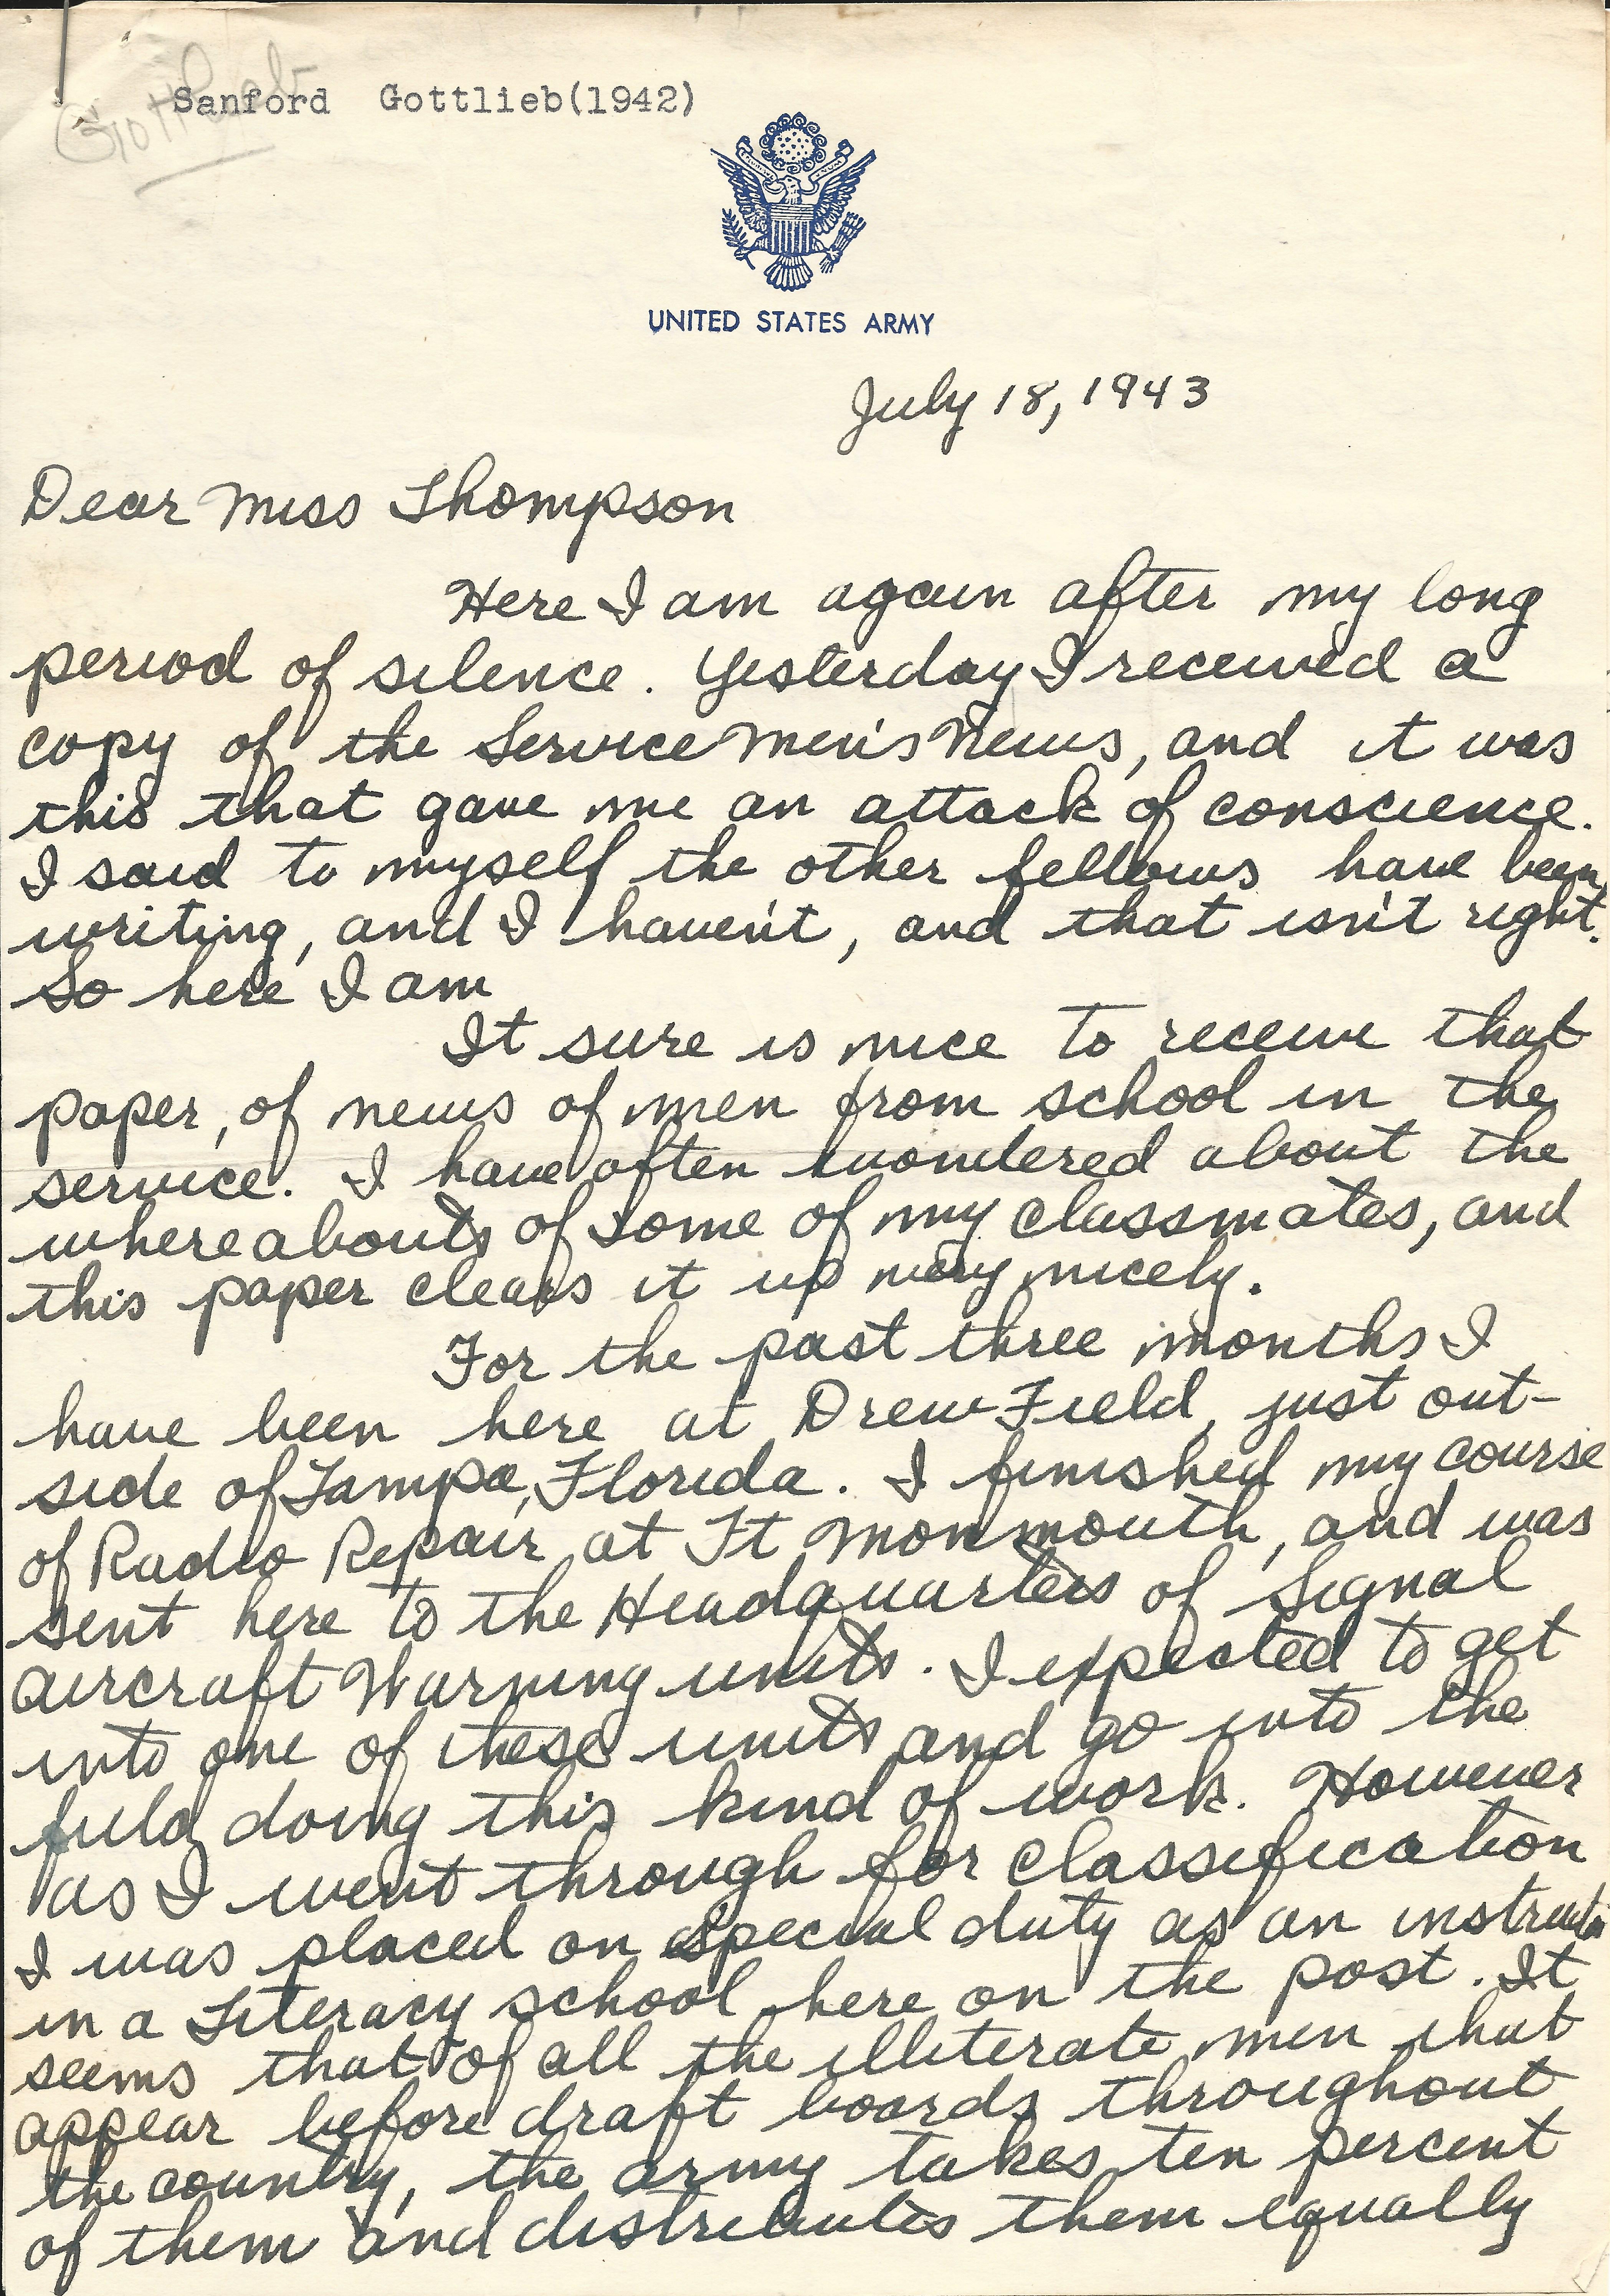 Gottlieb
Sanford Gottlieb(1942)
UNITED STATES ARMY
July 18, 1943
Dear Miss Thompson
Here I am again after my long
period of silence. Yesterday I received a
copy of the Service Men's News, and it was
this that gave me an attack of conscience.
I said to myself the other fellows have been
writing, and I haven't, and that isn't right.
So here I am
It sure is nice to receive that
paper, of news of men from school in the
service. I have often wondered about the
whereabouts of some of my classmates, and
this paper clears it up very nicely.
For the past three months I
have been here at Drew Field, just out-
side of Tampa, Florida. I finished my course
of Radio Repair at Ft Monmouth, and was
sent here to the Headquarters of Signal
Aircraft Warning units. I expected to get
into one of these units and go into the
field doing this kind of work. However
as I went through for classification
I was placed on special duty as an instructor
in a Literacy school here on the post. It
seems that of all the illiterate men that
appear before draft boards throughout
the country, the army takes ten percent
of them and distributes them equally